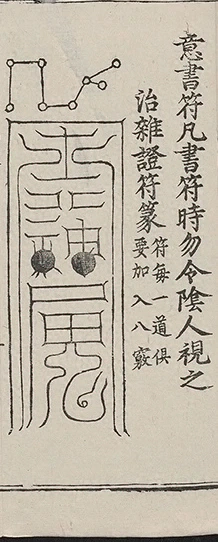 意書符凡書符時勿令陰人視之
治雜證符篆
符每一道俱
要加入八竅